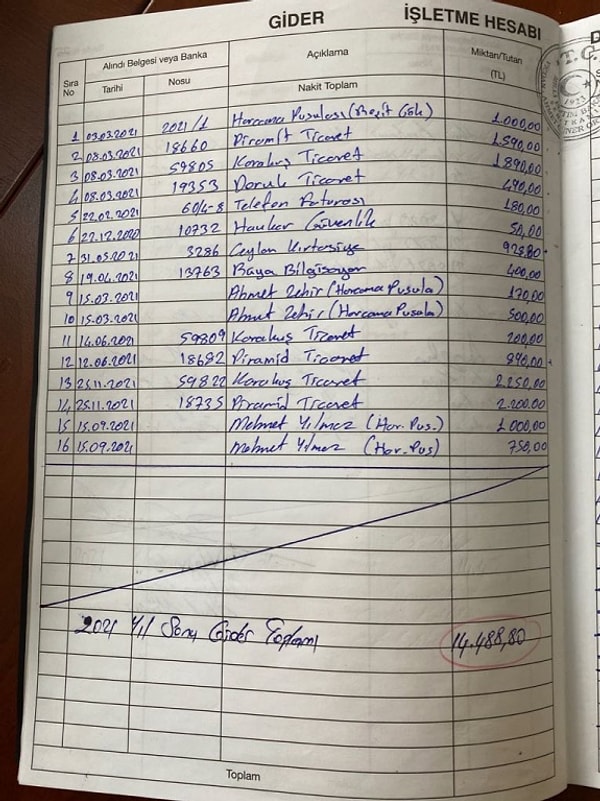 GİDER İŞLETME HESABI
Sıra No Alındı Belgesi veya Banka Açıklama Miktarı/Tutarı (TL)
Tarihi Nosu Nakit Toplam
1 03.03.2021 2021/1 Harcama Pusulası (Reşit Gök) 1.000,00
2 08.03.2021 18660 Piramit Ticaret 1.590,00
3 08.03.2021 59805 Karakuş Ticaret 1.890,00
4 08.03.2021 19353 Doruk Ticaret 490,00
5 22.02.2021 60/4-8 Telefon Faturası 180,00
6 22.12.2020 10732 Haukar Güvenlik 50,00
7 31.05.2021 3286 Ceylan Kırtasiye 928,80
8 19.04.2021 13763 Baya Bilgisayar 400,00
9 15.03.2021 Ahmet Zehir (Harcama Pusula) 170,00
10 15.03.2021 Ahmet Zehir (Harcama Pusula) 500,00
11 14.06.2021 59809 Karakuş Ticaret 200,00
12 12.06.2021 18682 Piramid Ticaret 890,00
13 25.11.2021 59822 Karakuş Ticaret 2.250,00
14 25.11.2021 18735 Piramid Ticaret 2.200.00
15 15.09.2021 Mehmet Yılmaz (Har. Pus.) 1000,00
16 15.09.2021 Mehmet Yılmaz (Har. Pus) 750,00
2021 Yıl Sonu Gider Toplamı 14.488,80
Toplam
T.C.
1923